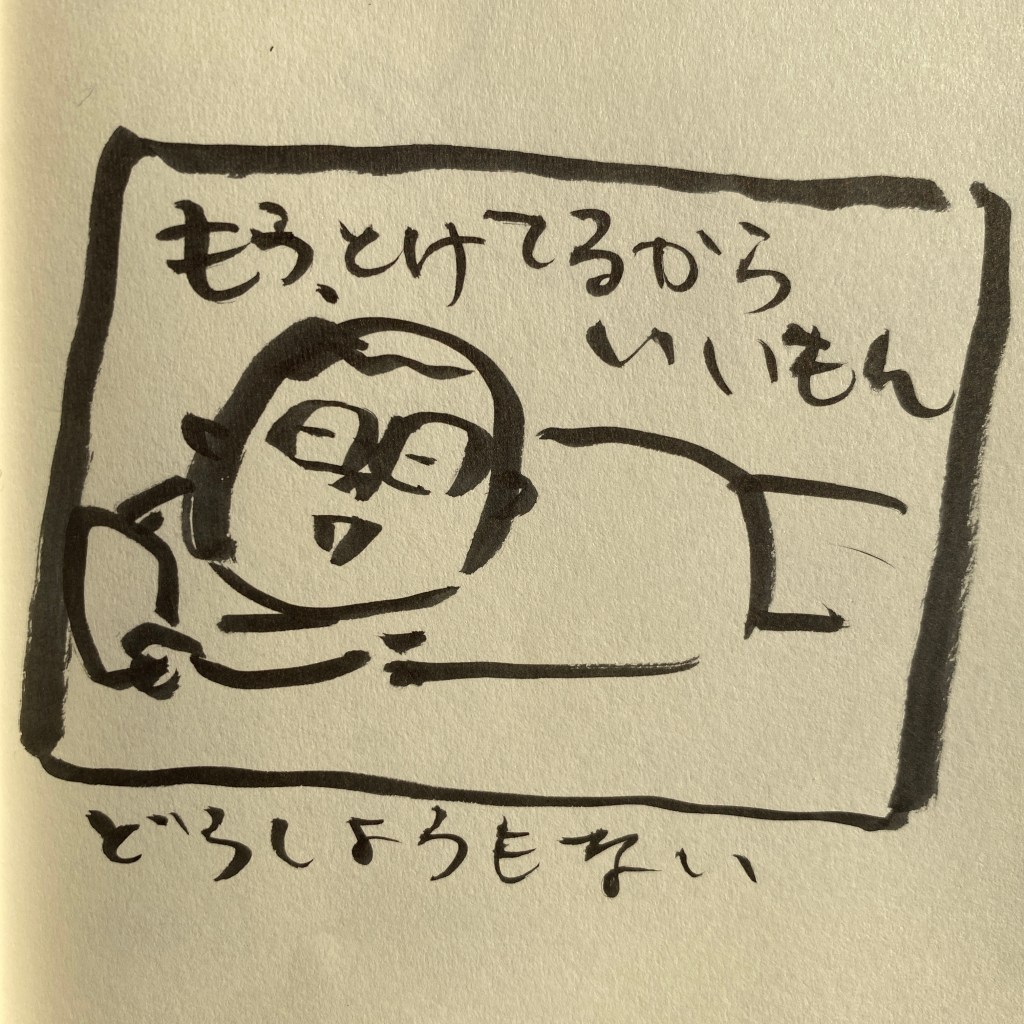 もう、とけてるから
いいもん
どうしようもない